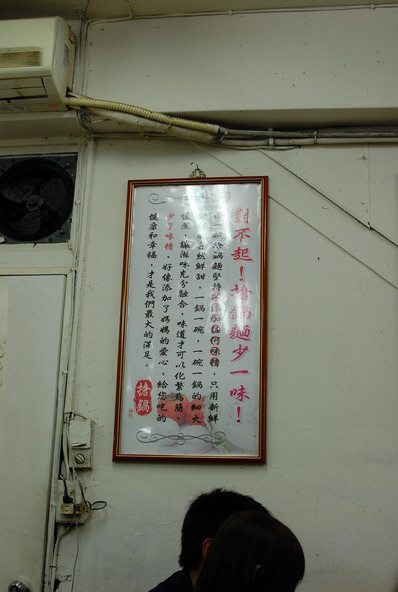 對不起！搶鍋麵少一味！
鍋麵堅持不添加任何味精，只用新鮮
自然鮮甜，一鍋一碗，一碗一鍋的細火
慢熬，讓滋味充分融合，味道才可以化繁為簡。
少了味精，好像添加了媽媽的愛心，給您吃的
健康和幸福，才是我們最大的滿足。
搶鍋